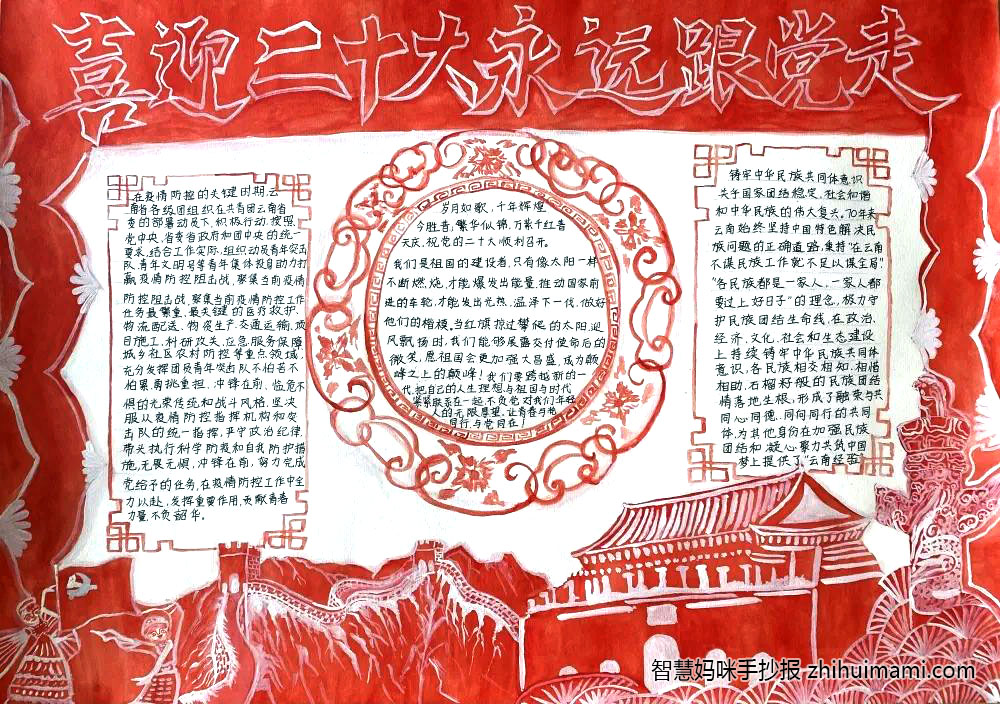 喜迎二十大永远跟党走
在疫情防控的关键时期,云
南省各级团组织在共青团云南省
委的部署动员下,积极行动,按照
党中央、省委省政府和团中央的统一
要求,结合工作实际,组织动员青年突击
队、青年文明号等青年集体投身助力打
赢疫情防控阻击战,聚集当前疫情
防控阻击战,聚集当前疫情防控工作
任务最繁重、最关键的医疗救护、
物流配送、物资生产、交通运输、项
目施工、科研攻关、应急服务保障
城乡社区农村防控等重点领域,
充分发挥团员青年突击队不怕苦不
怕累勇挑重担、冲锋在前、临危不
惧的光荣传统和战斗风格,坚决
服从疫情防控指挥机构和突
击队的统一指挥,严守政治纪律,
带头执行科学防疫和自我防护措
施,无畏无惧,冲锋在前,努力完成
党给予的任务,在疫情防控工作中全
力以赴,发挥重要作用,贡献青春
力量,不负韶华。
岁月如歌,千年辉煌
今胜昔,繁华似锦,万紫千红春
天庆,祝党的二十大顺利召开。
我们是祖国的建设者,只有像太阳一样
不断燃烧,才能爆发出能量,推动国家前
进的车轮,才能发出光热,温泽下一代,做好
他们的楷模,当红旗掠过攀爬的太阳,迎
风飘扬时,我们能够展露交付使命后的
微笑,愿祖国会更加强大昌盛,成为巅
峰之上的巅峰!我们要跨越新的一
代,把自己的人生理想与祖国与时代
紧紧联系在一起,不负党对我们年轻
人的无限厚望,让青春与党
同行,与党同在!
铸牢中华民族共同体意识
关乎国家团结稳定、社会和谐
和中华民族的伟大复兴。70年来
云南始终坚持中国特色解决民
族问题的正确道路,秉持“在云南
不谋民族工作就不足以谋全局”
“各民族都是一家人,一家人都
要过上好日子”的理念,极力守
护民族团结生命线,在政治、
经济、文化、社会和生态建设
上持续铸牢中华民族共同体
意识,各民族相交相知、相惜
相助,石榴籽般的民族团结
情落地生根,形成了融荣与共
同心同德、同向同行的共同
体,为其他身份在加强民族
团结和凝心聚力共筑中国
梦上提供了“云南经验”
智慧妈咪手抄报 zhihuimami.com